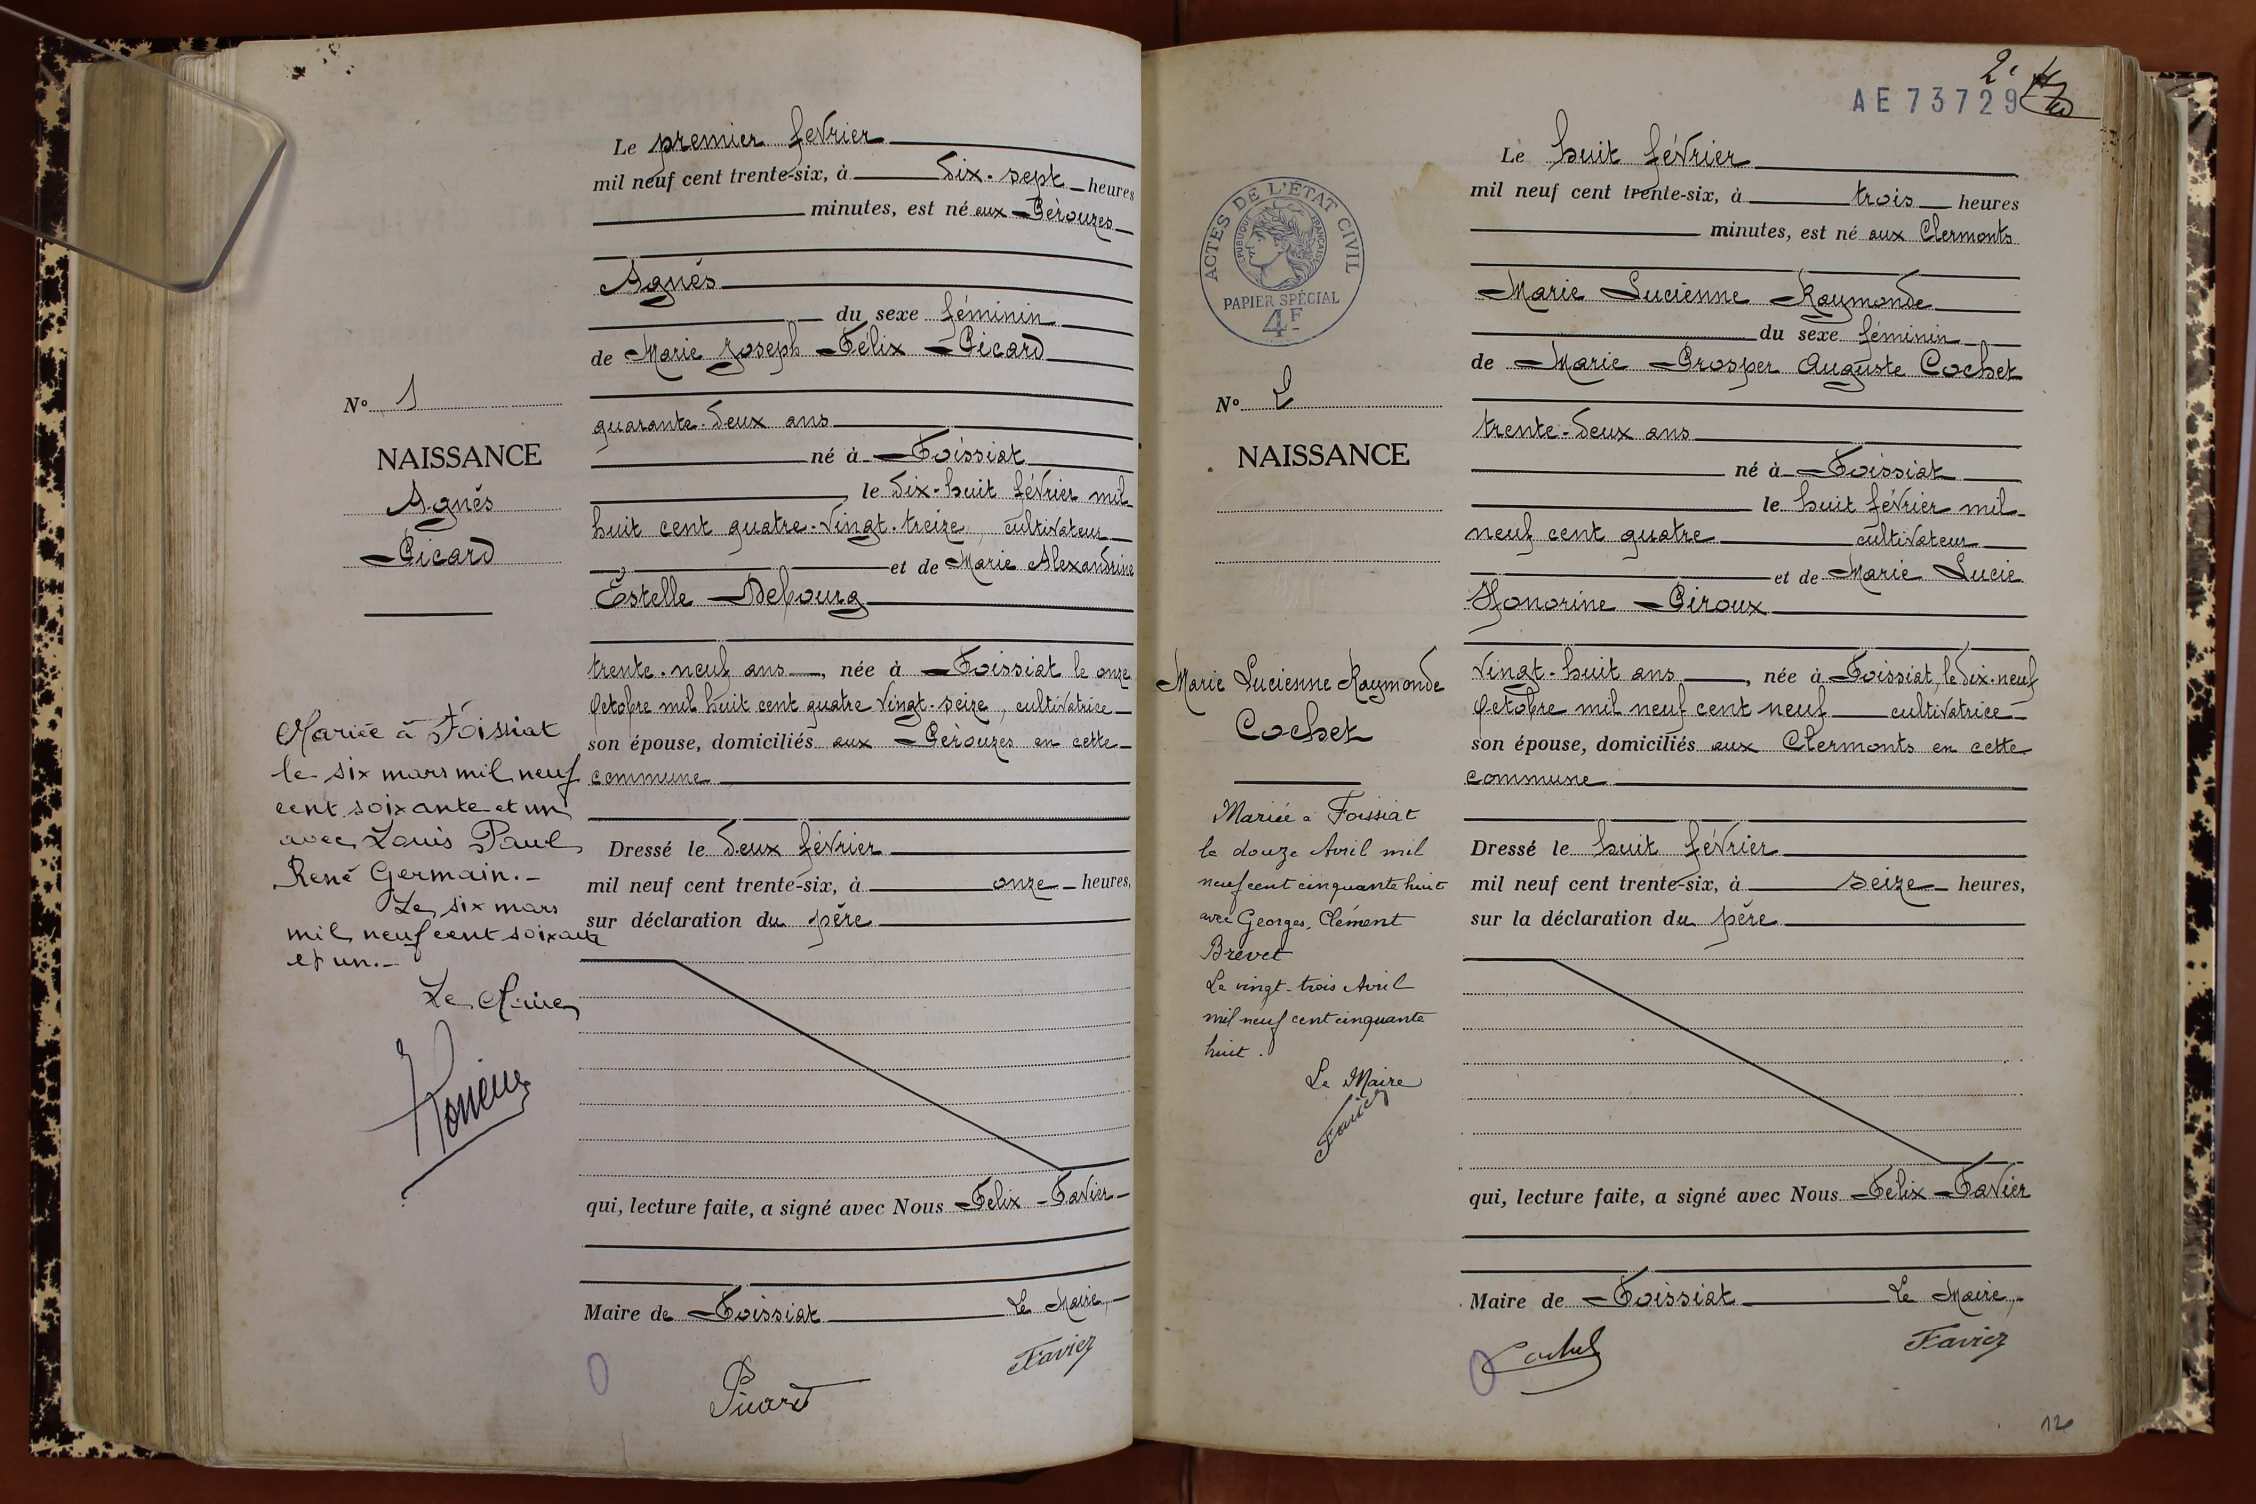 Le premier fevrier
mil neuf cent trente-six, à dix-sept heures
minutes, est né aux Pérouzes
Agnès
du sexe féminin
de Marie Joseph Félix Picard
quarante-deux ans
né à Foissiat
le dix-huit février mil
huit cent quatre-vingt-treize, cultivateur
et de Marie Alexandrine
Estelle Debourg
trente-neuf ans, née à Foissiat le onze
Octobre mil huit cent quatre vingt-seize, cultivatrice
son épouse, domiciliés aux Pérouzes en cette
commune
Dressé le deux février
mil neuf cent trente-six, à onze heures,
sur déclaration du père
qui, lecture faite, a signé avec Nous Felix Favier
Maire de Foissiat Le Maire,
Picard
Favier
N° 1
NAISSANCE
Agnès
Picard
Mariée à Foissiat
le six mars mil neuf
cent soixante et un
avec Louis Paul
René Germain.-
Le six mars
mil neuf cent soixante
et un.-
Le Maire
2e
AE 73729
Le huit février
mil neuf cent trente-six, à trois heures
minutes, est né aux Clermonts
Marie Lucienne Raymonde
du sexe féminin
de Marie Prosper Auguste Cochet
trente-deux ans
né à Foissiat
le huit février mil
neuf cent quatre cultivateur
et de Marie Lucie
Honorine Piroux
vingt-huit ans, née à Foissiat, le dix-neuf
Octobre mil neuf cent neuf cultivatrice
son épouse, domiciliés aux Clermonts en cette
commune
Dressé le huit février
mil neuf cent trente-six, à seize heures,
sur la déclaration du père
qui, lecture faite, a signé avec Nous Felix Favier
Maire de Foissiat Le Maire,
Cochet
Favier
ACTES DE L'ÉTAT CIVIL
RÉPUBLIQUE FRANÇAISE
PAPIER SPÉCIAL
4F
N° 2
NAISSANCE
Marie Lucienne Raymonde
Cochet
Mariée à Foissiat
le douze Avril mil
neuf cent cinquante huit
avec Georges, Clément
Brevet
Le vingt-trois Avril
mil neuf cent cinquante
huit.
Le Maire
Favier
120